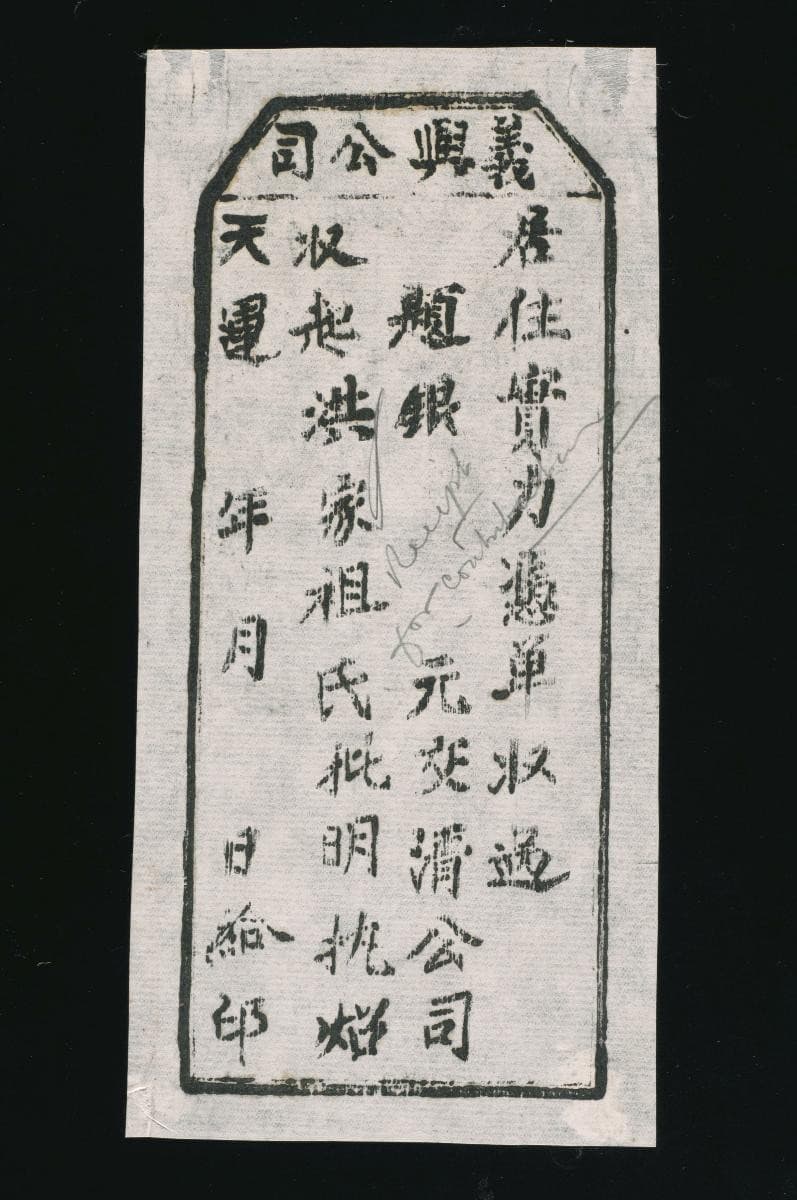 義興公司
居住實力憑单收過
題銀 元交清公司
收起洪家祖氏批明执炤
天運 年 月 日給印
Receipt
for contribution